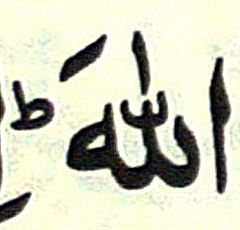 اللهَ ؕ